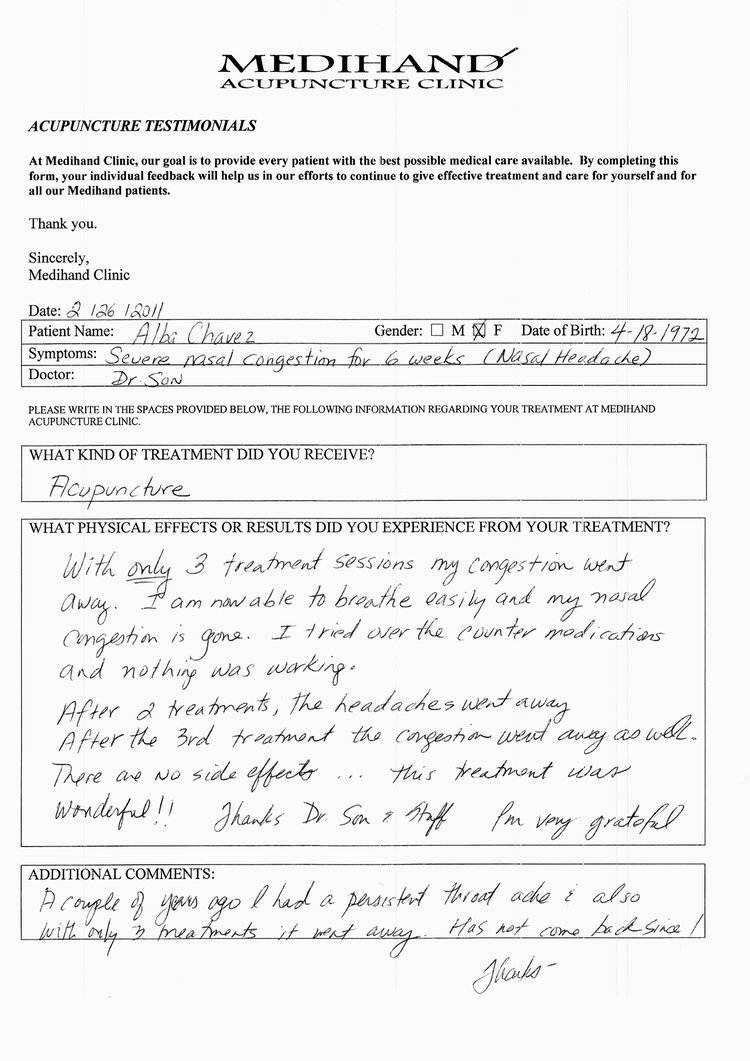 MEDIHAND
ACUPUNCTURE CLINIC
ACUPUNCTURE TESTIMONIALS
At Medihand Clinic, our goal is to provide every patient with the best possible medical care available. By completing this
form, your individual feedback will help us in our efforts to continue to give effective treatment and care for yourself and for
all our Medihand patients.
Thank you.
Sincerely,
Medihand Clinic
Date: 2 126 12011
Patient Name: Alba Chavez Gender: ☐ M ☒ F Date of Birth: 4-18-1972
Symptoms: Severe nasal congestion for 6 weeks (Nasal Headache)
Doctor: Dr. Son
PLEASE WRITE IN THE SPACES PROVIDED BELOW, THE FOLLOWING INFORMATION REGARDING YOUR TREATMENT AT MEDIHAND
ACUPUNCTURE CLINIC.
WHAT KIND OF TREATMENT DID YOU RECEIVE?
Acupuncture
WHAT PHYSICAL EFFECTS OR RESULTS DID YOU EXPERIENCE FROM YOUR TREATMENT?
With only 3 treatment sessions my congestion went
away. I am now able to breathe easily and my nasal
congestion is gone. I tried over the counter medications
and nothing was working.
After 2 treatments, the headaches went away
After the 3rd treatment the congestion went away as well.
There are no side effects ... this treatment was
wonderful!! Thanks Dr. Son & Staff I'm very grateful
ADDITIONAL COMMENTS:
A couple of years ago I had a persistent throat ache & also
with only 3 treatments it went away. Has not come back since!
Thanks-